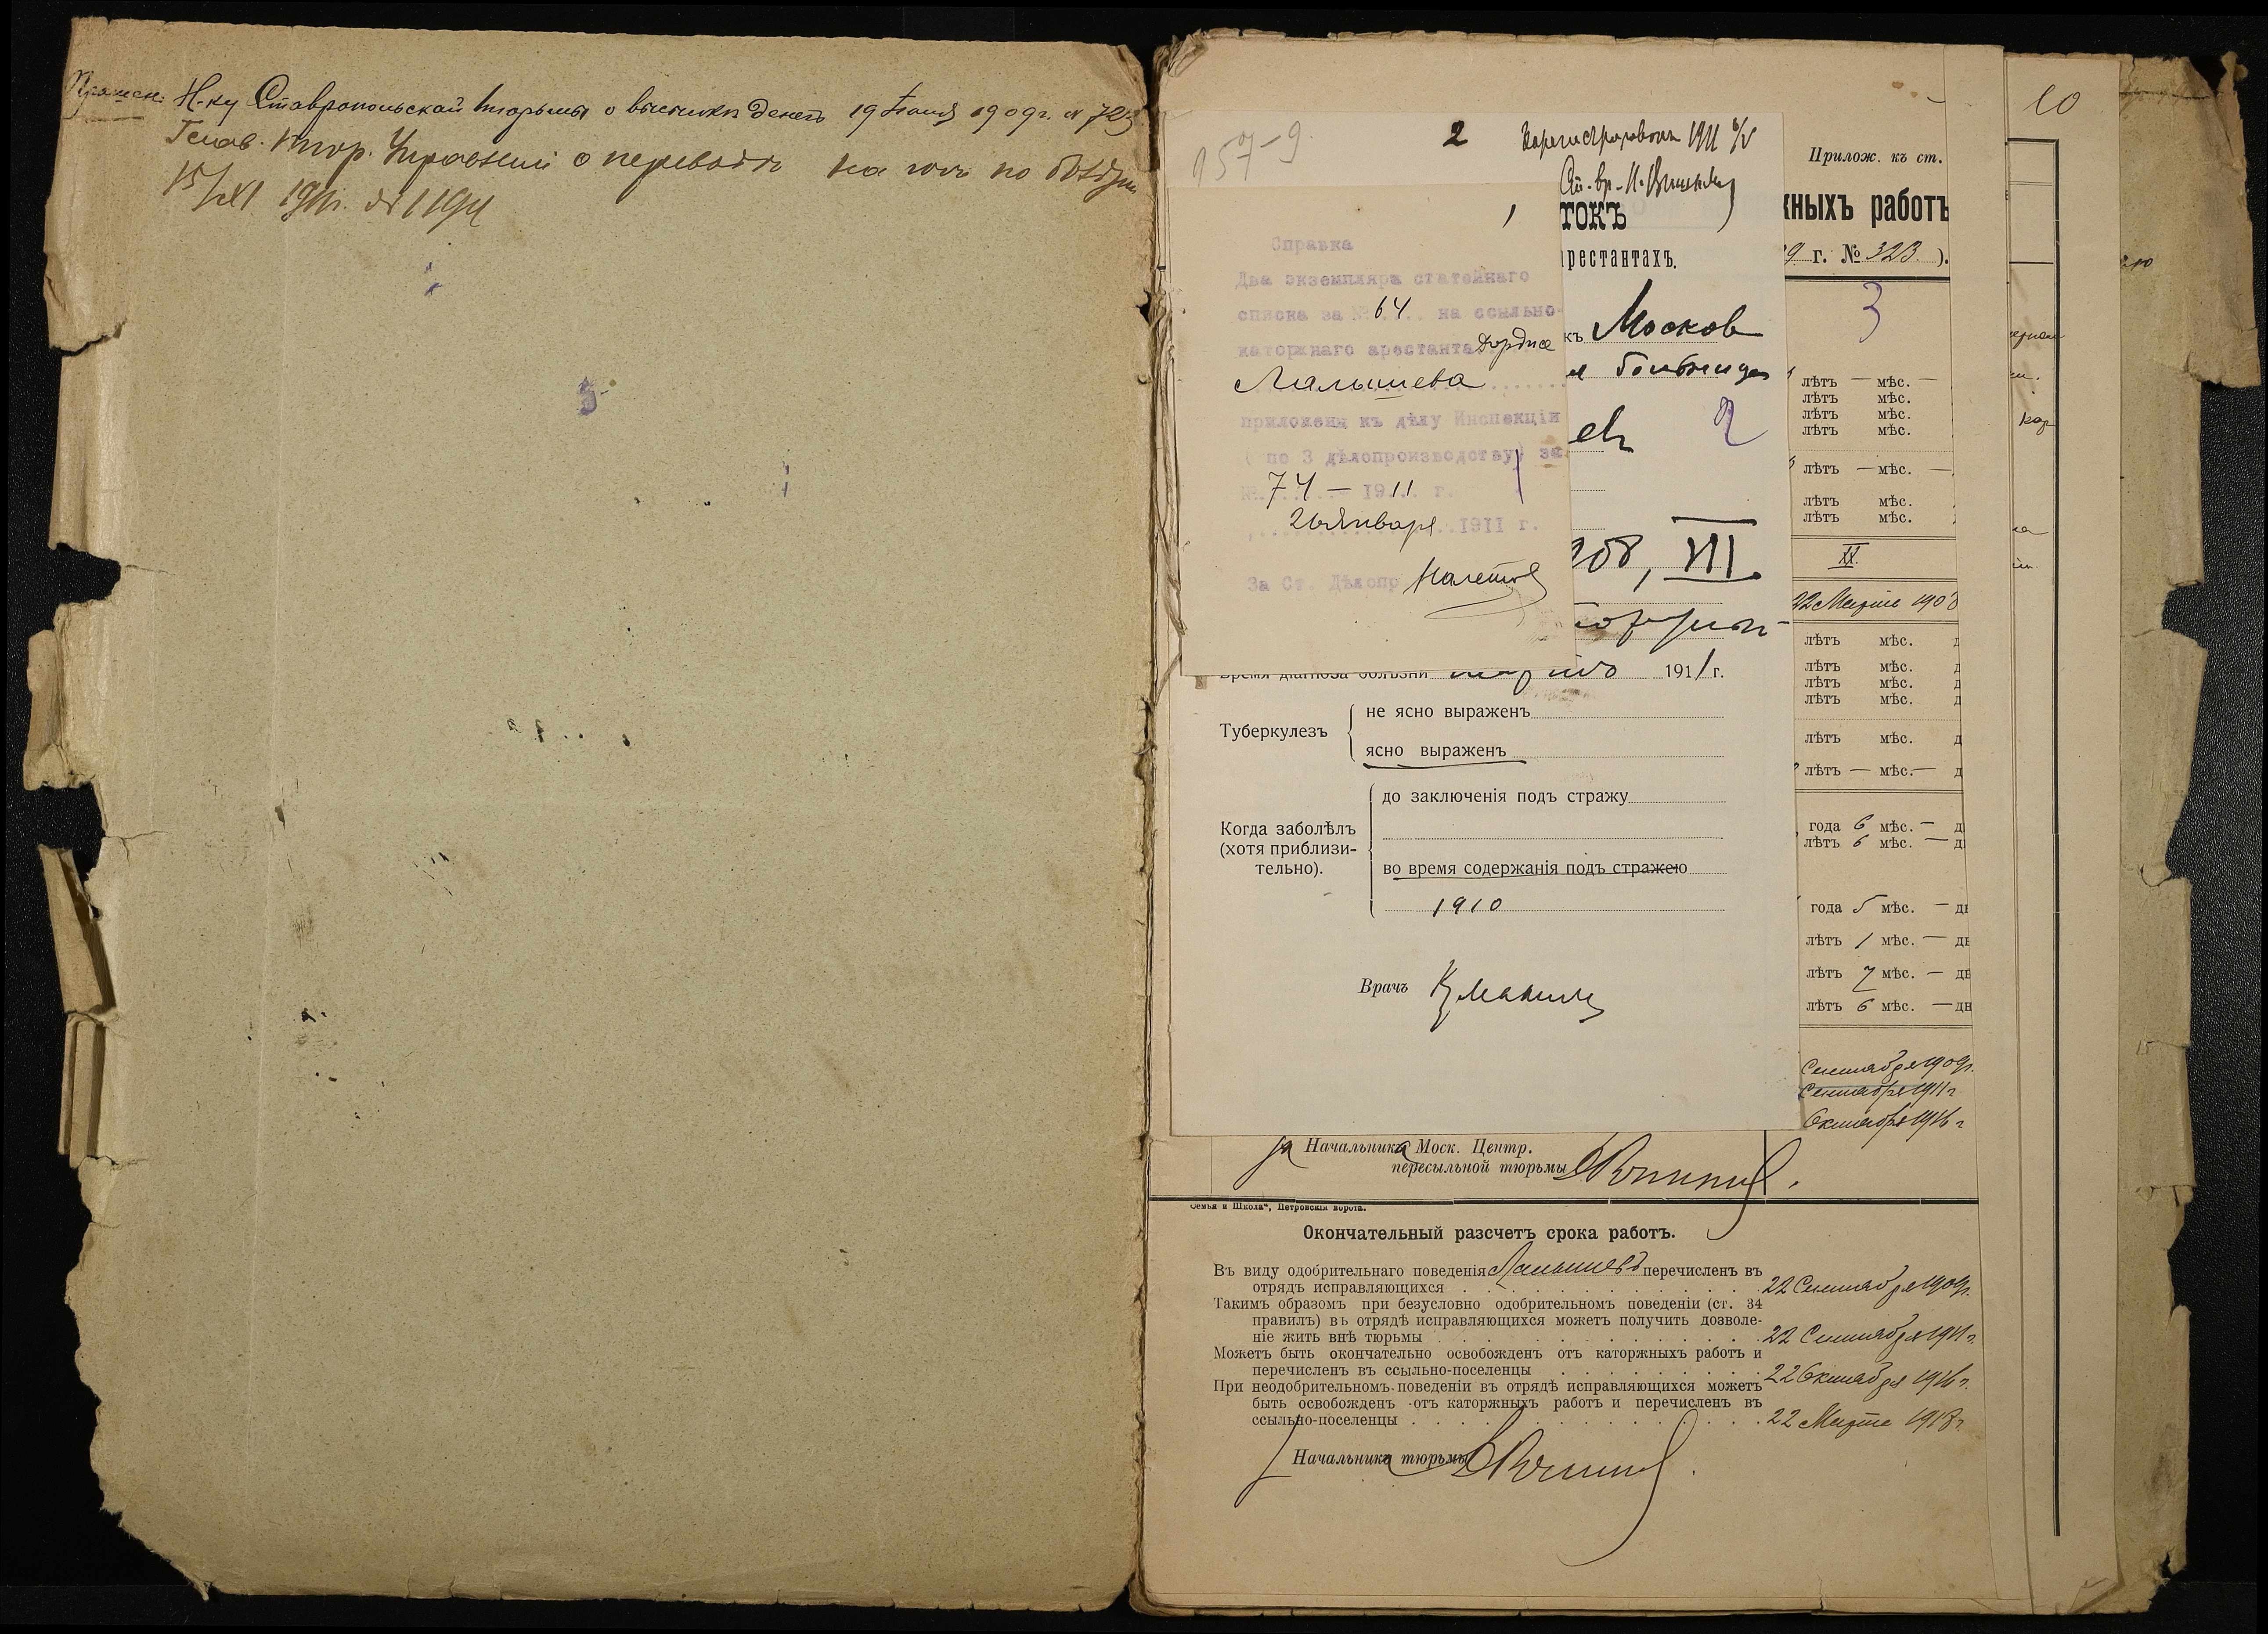 Н-ку Ставропольской тюрьмы о высылке денегъ 19 1909 г. № 723
Главн. Тюр. о переводѣ на югъ по
15/XI 1911 г. № 1194
157-9
2
1911
Справка
Два экземпляра статейнаго
списка за № 64 на ссыльно-
каторжнаго арестанта
Малышева
приложены къ дѣлу Инспекціи
( по 3 дѣлопроизводству) за
№ 74 — 1911 г.
26 Января 1911 г.
За Ст. Дѣлопр
токъ
рестантахъ.
къ Москов
больница
евъ
2
908, III
Время діагноза болѣзни мартъ 1911 г.
Туберкулезъ
не ясно выраженъ
ясно выраженъ
Когда заболѣлъ
(хотя приблизи-
тельно).
до заключенія подъ стражу
во время содержанія подъ стражею
1910
Врачъ
Прилож. къ ст.
жныхъ работъ
9 г. № 323 ).
3
лѣтъ — мѣс. —
лѣтъ мѣс.
лѣтъ мѣс.
лѣтъ мѣс.
лѣтъ — мѣс. —
лѣтъ мѣс.
лѣтъ мѣс.
XX.
22 Марта 1908
лѣтъ мѣс. д
лѣтъ мѣс. д
лѣтъ мѣс. д
лѣтъ мѣс. д
лѣтъ мѣс. д
лѣтъ — мѣс. — д
года 6 мѣс. — д
лѣтъ 6 мѣс. — д
года 5 мѣс. — дн
лѣтъ 1 мѣс. — дн
лѣтъ 7 мѣс. — дн
лѣтъ 6 мѣс. — дн
Сентября 1909 г.
Сентября 1911 г
Октября 1916 г
10
за Начальника Моск. Центр.
пересыльной тюрьмы
Семья и Школа", Петровскія ворота.
Окончательный разсчетъ срока работъ.
Въ виду одобрительнаго поведенія Малышевъ перечисленъ въ
отрядъ исправляющихся 22 Сентября 1909 г.
Такимъ образомъ при безусловно одобрительномъ поведеніи (ст. 34
правилъ) въ отрядѣ исправляющихся можетъ получить дозволе-
ніе жить внѣ тюрьмы 22 Сентября 1911 г.
Можетъ быть окончательно освобожденъ отъ каторжныхъ работъ и
перечисленъ въ ссыльно-поселенцы 22 Октября 1916 г.
При неодобрительномъ поведеніи въ отрядѣ исправляющихся можетъ
быть освобожденъ отъ каторжныхъ работъ и перечисленъ въ
ссыльно-поселенцы 22 Марта 1918 г.
Начальника тюрьмы